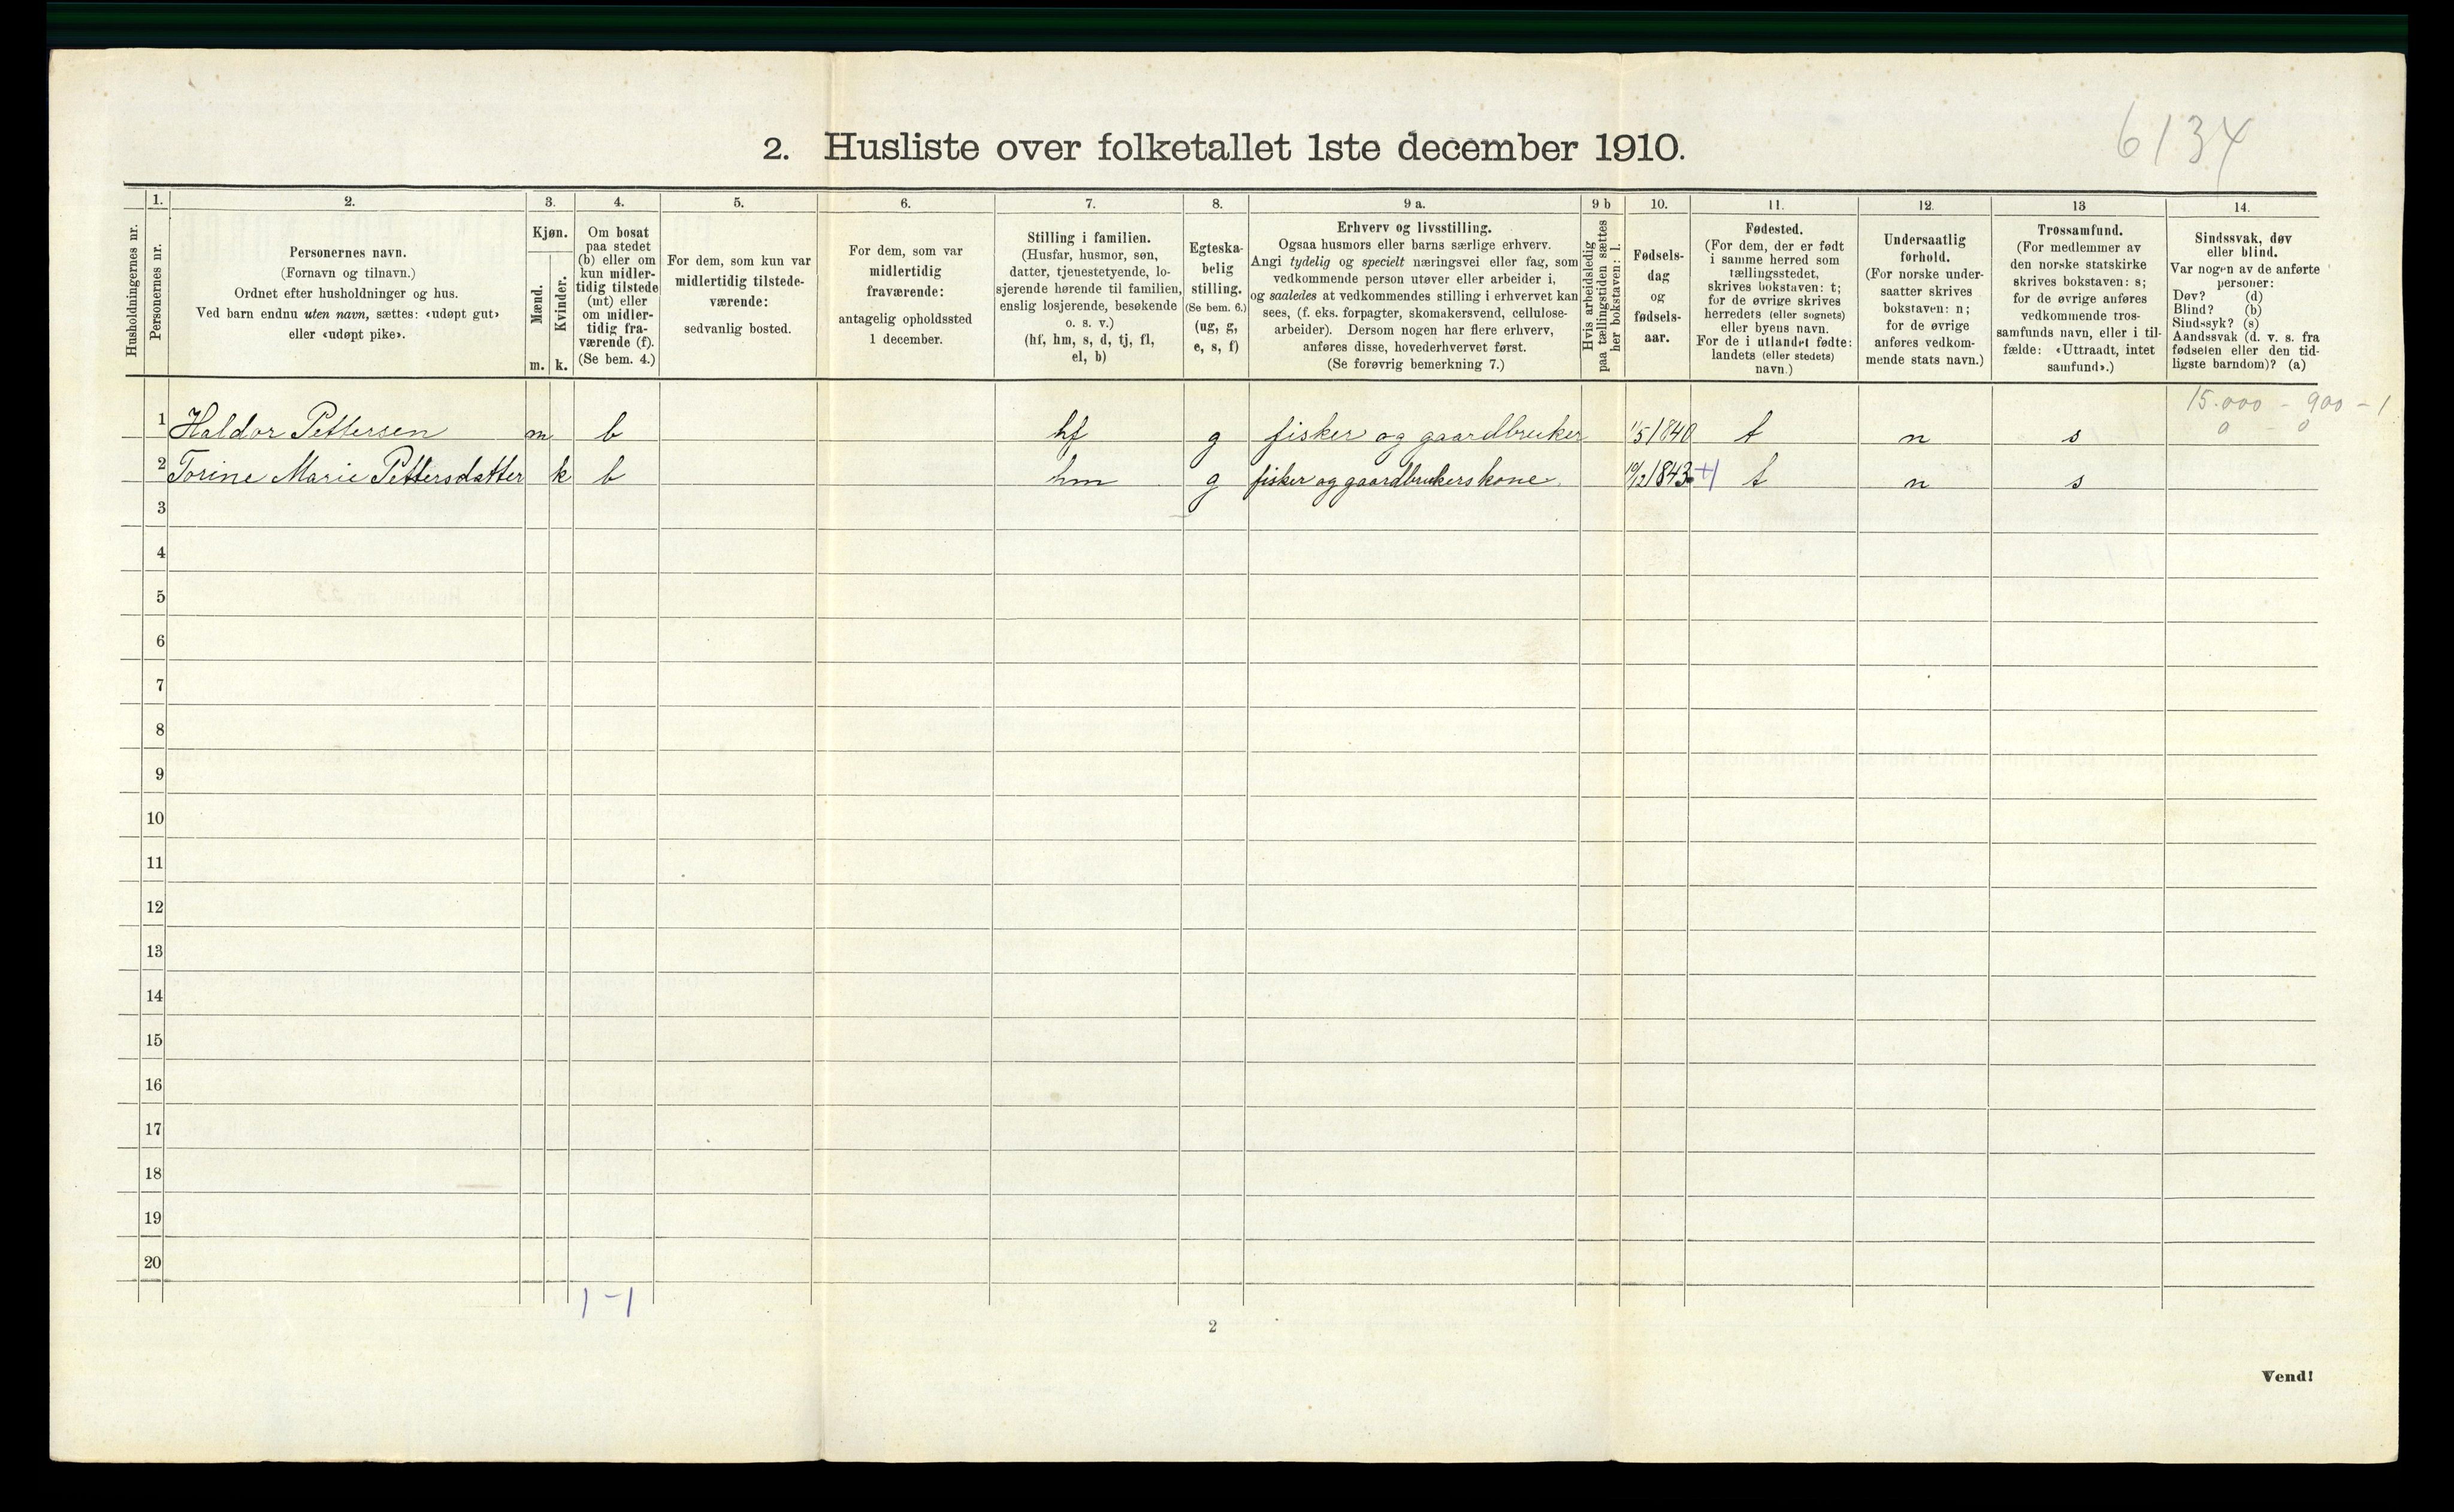 6134
2. Husliste over folketallet 1ste december 1910.
Husholdningernes nr.
1.
Personernes nr.
2.
Personernes navn.
(Fornavn og tilnavn.)
Ordnet efter husholdninger og hus.
Ved barn endnu uten navn, sættes: «udøpt gut»
eller «udøpt pike».
3.
Kjøn.
Mænd.
Kvinder.
m. k.
4.
Om bosat
paa stedet
(b) eller om
kun midler-
tidig tilstede
(mt) eller
om midler-
tidig fra-
værende (f).
(Se bem. 4.)
5.
For dem, som kun var
midlertidig tilstede-
værende:
sedvanlig bosted.
6.
For dem, som var
midlertidig
fraværende:
antagelig opholdssted
1 december.
7.
Stilling i familien.
(Husfar, husmor, søn,
datter, tjenestetyende, lo-
sjerende hørende til familien,
enslig losjerende, besøkende
o. s. v.)
(hf, hm, s, d, tj, fl,
el, b)
8.
Egteska-
belig
stilling.
(Se bem. 6.)
(ug, g,
e, s, f)
9 a.
Erhverv og livsstilling.
Ogsaa husmors eller barns særlige erhverv.
Angi tydelig og specielt næringsvei eller fag, som
vedkommende person utøver eller arbeider i,
og saaledes at vedkommendes stilling i erhvervet kan
sees, (f. eks. forpagter, skomakersvend, cellulose-
arbeider). Dersom nogen har flere erhverv,
anføres disse, hovederhvervet først.
(Se forøvrig bemerkning 7.)
9 b
Hvis arbeidsledig
paa tællingstiden sættes
her bokstaven: l.
10.
Fødsels-
dag
og
fødsels-
aar.
11.
Fødested.
(For dem, der er født
i samme herred som
tællingsstedet,
skrives bokstaven: t;
for de øvrige skrives
herredets (eller sognets)
eller byens navn.
For de i utlandet fødte:
landets (eller stedets)
navn.)
12.
Undersaatlig
forhold.
(For norske under-
saatter skrives
bokstaven: n;
for de øvrige
anføres vedkom-
mende stats navn.)
13
Trossamfund.
(For medlemmer av
den norske statskirke
skrives bokstaven: s;
for de øvrige anføres
vedkommende tros-
samfunds navn, eller i til-
fælde: «Uttraadt, intet
samfund».)
14.
Sindssvak, døv
eller blind.
Var nogen av de anførte
personer:
Døv? (d)
Blind? (b)
Sindssyk? (s)
Aandssvak (d. v. s. fra
fødselen eller den tid-
ligste barndom)? (a)
15.000 - 900 - 1
0 - 0
1 Haldor Pettersen m b hf g fisker og gaardbruker 1/5 1840 t n s
2 Torine Marie Pettersdatter k b hm g fisker og gaardbrukers kone 10/12 1843 +1 t n s
3
4
5
6
7
8
9
10
11
12
13
14
15
16
17
18
19
20
1 - 1
2
Vend!